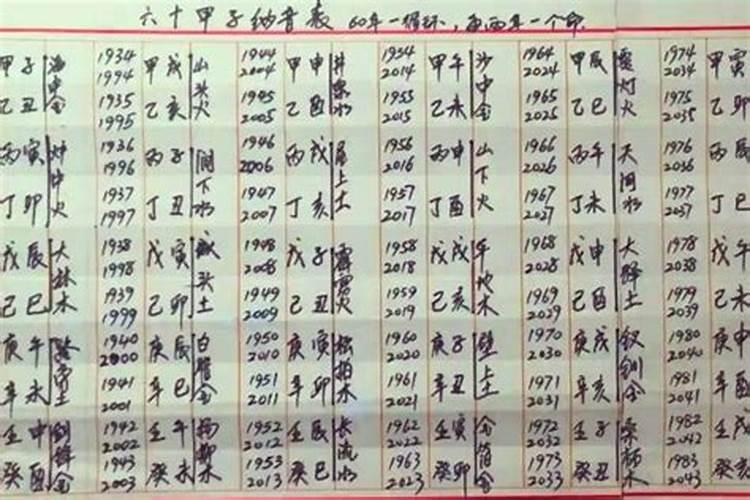 六十甲子纳音表 60年一循环，每两年一个命
甲子 海中金 1934 1994 甲戌 山头火 1944 2004 甲申 井泉水 1954 2014 甲午 沙中金 1964 2024 甲辰 覆灯火 1974 2034 甲寅
乙丑 1935 1995 乙亥 1945 2005 乙酉 1955 2015 乙未 1965 2025 乙巳 1975 2035 乙卯
丙寅 炉中火 1936 1996 丙子 涧下水 1946 2006 丙戌 屋上土 1956 2016 丙申 山下火 1966 2026 丙午 天河水 1976 2036 丙辰
丁卯 1937 1997 丁丑 1947 2007 丁亥 1957 2017 丁酉 1967 2027 丁未 1977 2037 丁巳
戊辰 大林木 1938 1998 戊寅 城头土 1948 2008 戊子 霹雳火 1958 2018 戊戌 平地木 1968 2028 戊申 大驿土 1978 2038 戊午
己巳 1939 1999 己卯 1949 2009 己丑 1959 2019 己亥 1969 2029 己酉 1979 2039 己未
庚午 路旁土 1940 2000 庚辰 白蜡金 1950 2010 庚寅 松柏木 1960 2020 庚子 壁上土 1970 2030 庚戌 钗钏金 1980 2040 庚申
辛未 1941 2001 辛巳 1951 2011 辛卯 1961 2021 辛丑 1971 2031 辛亥 1981 2041 辛酉
壬申 剑锋金 1942 2002 壬午 杨柳木 1952 2012 壬辰 长流水 1962 2022 壬寅 金箔金 1972 2032 壬子 桑柘木 1982 2042 壬戌
癸酉 1943 2003 癸未 1953 2013 癸巳 1963 2023 癸卯 1973 2033 癸丑 1983 2043 癸亥